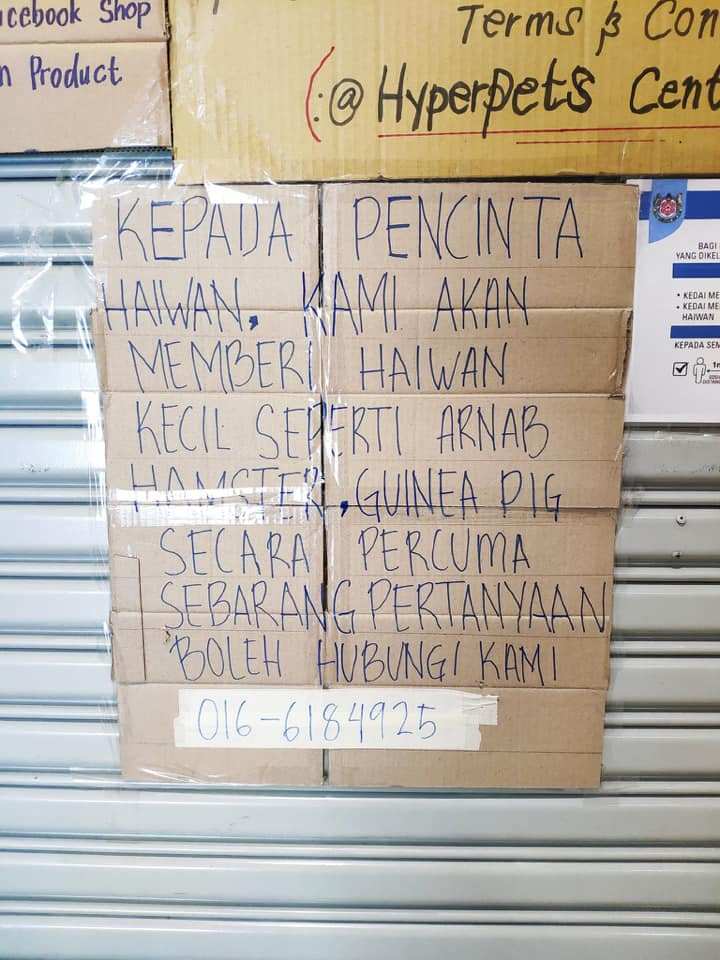 Shop
Product
Terms & Con
:@ Hyperpets Cent
KEPADA PENCINTA
HAIWAN, KAMI AKAN
MEMBERI HAIWAN
KECIL SEPERTI ARNAB
HAMSTER, GUINEA PIG
SECARA PERCUMA
SEBARANG PERTANYAAN
BOLEH HUBUNGI KAMI
016-6184925
BAGI
YANG DIKEL
• KEDAI ME
• KEDAI ME
HAIWAN
KEPADA SEM
1m